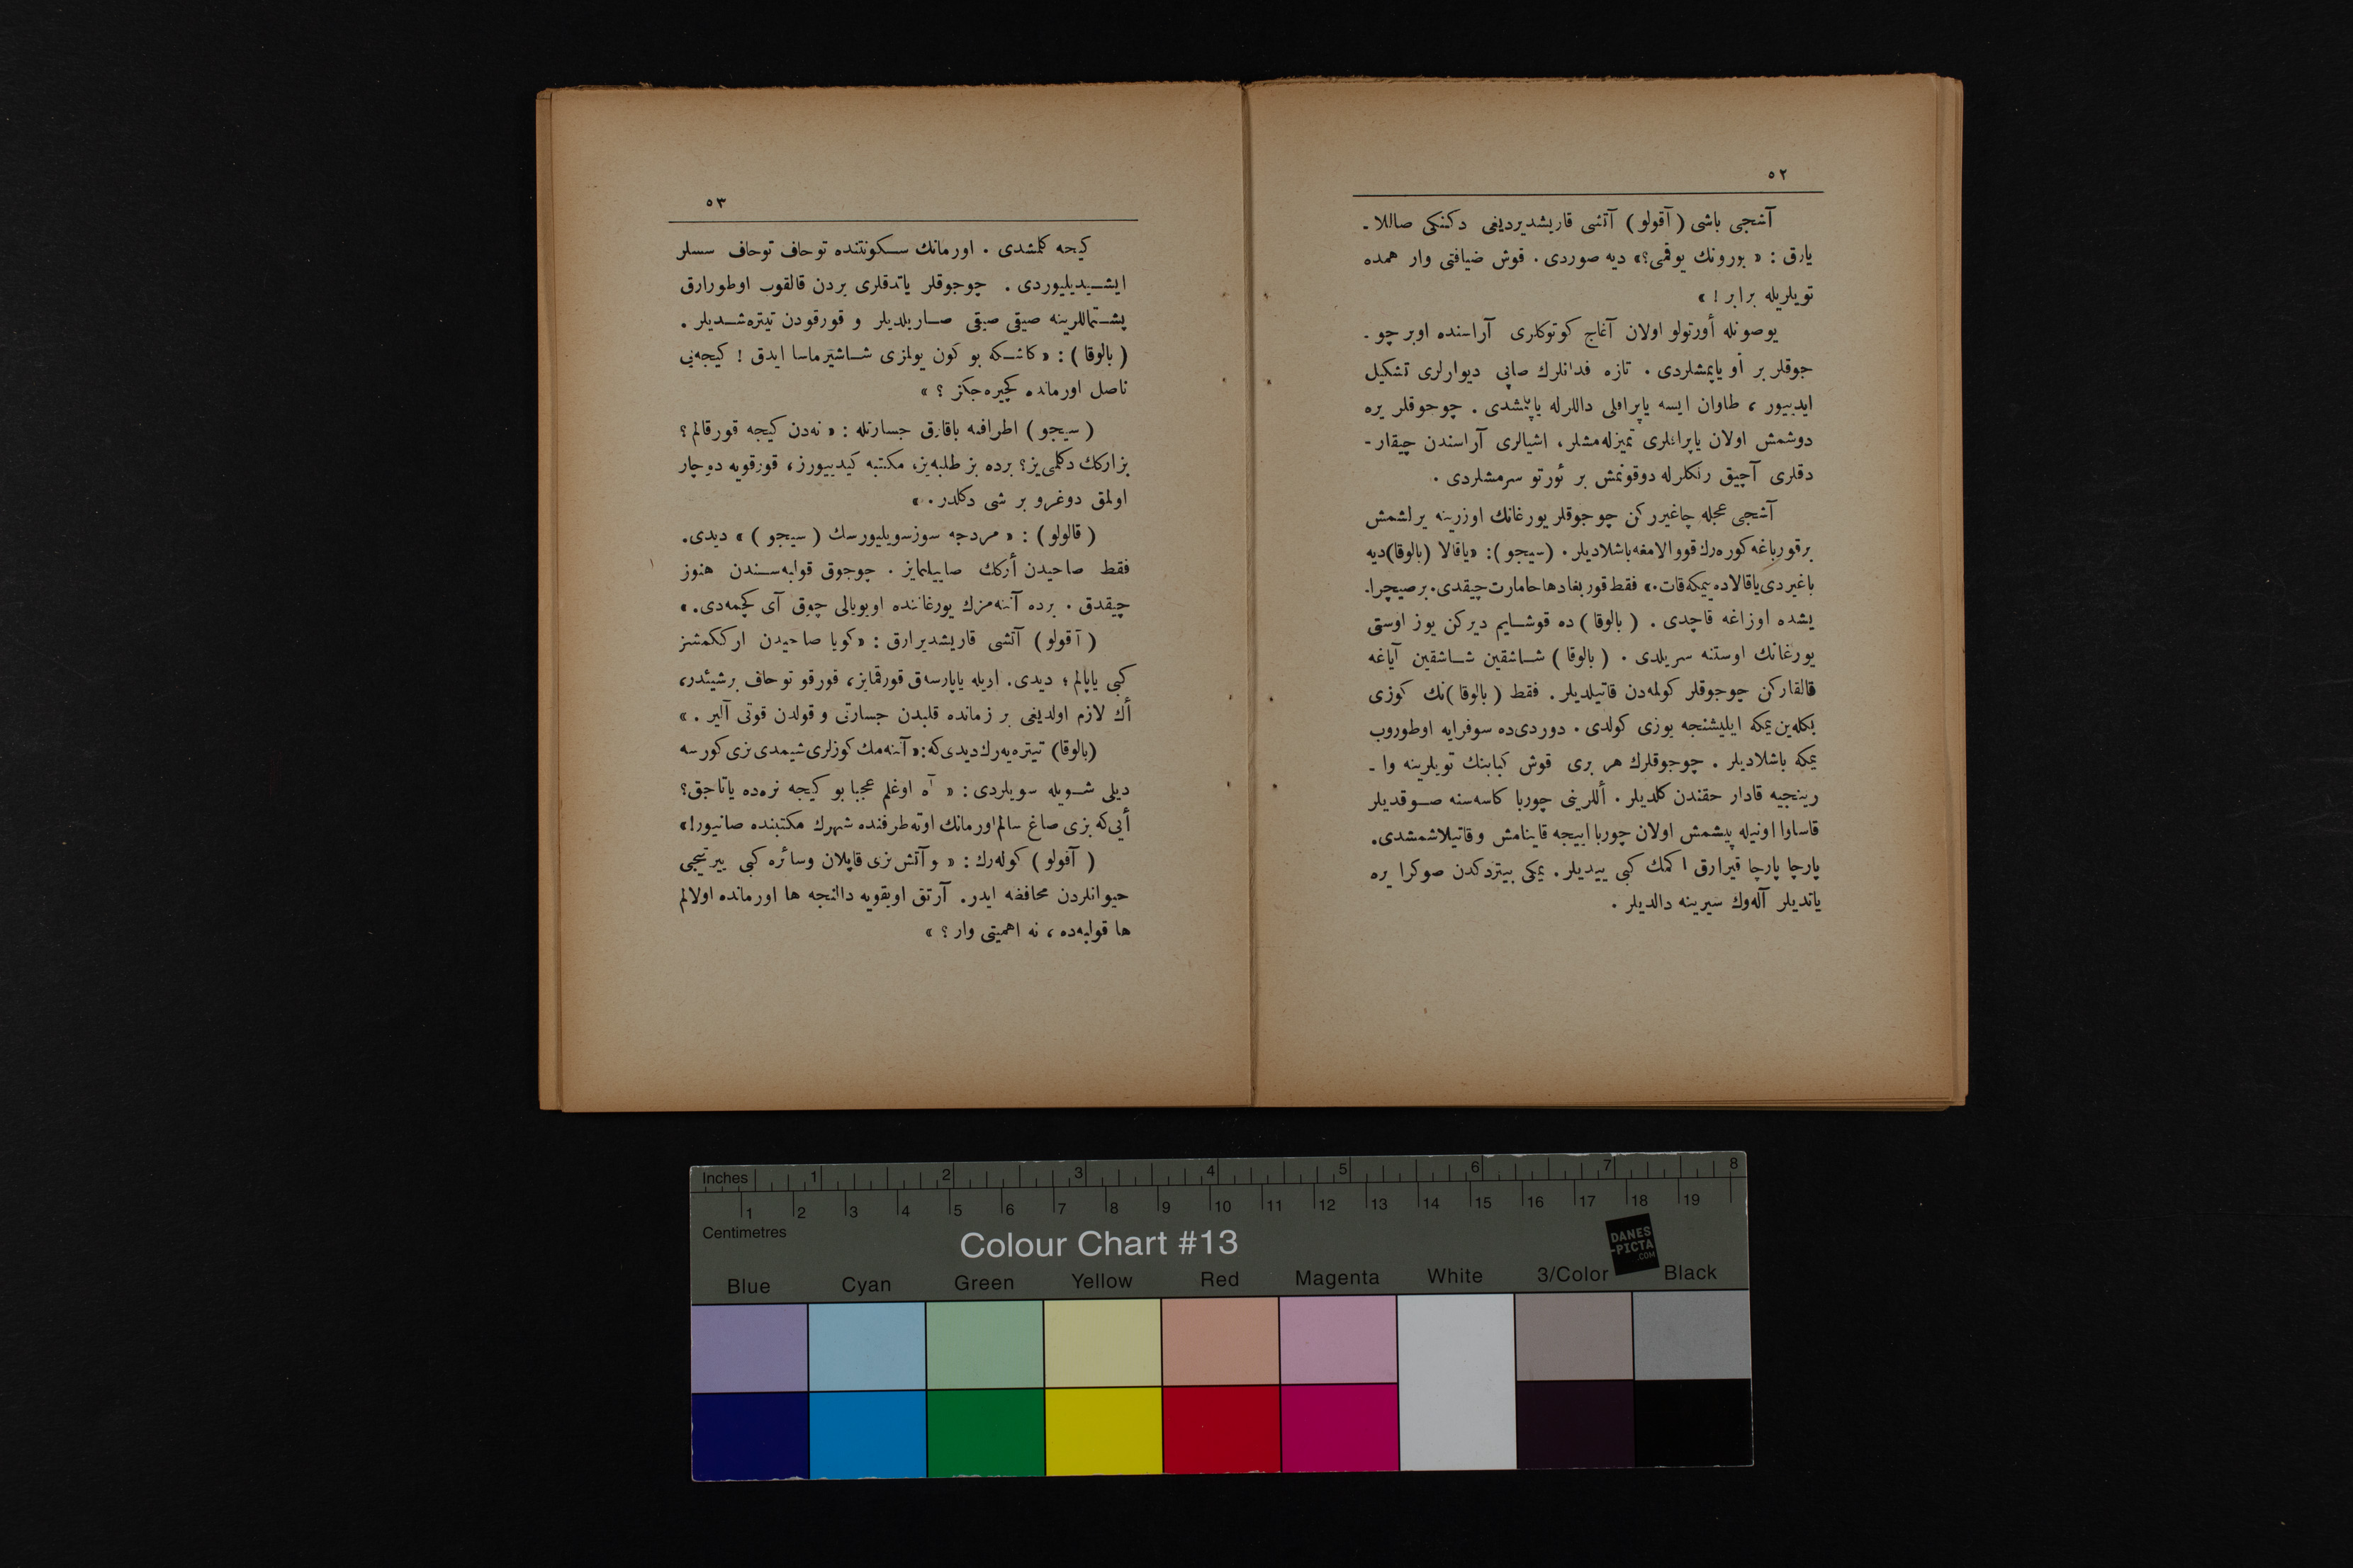 ٥٢
آشجی باشی (آقولو) آتشی قاریشدیردیغی دکنکی صاللا ـ
یارق : « بورونك یوقمی؟» دیه صوردی. قوش ضیافتی وار همده
تویلریله برابر ! »
یوصونله أورتولو اولان آغاج كوتوكلری آراسنده اوبر چو ـ
جوقلر بر أو یاپمشلردی . تازه فدانلرك صاپی دیوارلری تشكیل
ایدییور ، طاوان ایسه یاپراقلی داللرله یاپلمشدی . چوجوقلر یره
دوشمش اولان یاپراقلری تمیزله‌مشلر، اشیالری آراسندن چیقار -
دقلری آچیق رنكلرله دوقونمش بر ئورتو سرمشلردی .
آشجی عجله چاغیرركن چوجوقلر یورغانك اوزرینه یرلشمش
برقورباغه كوره‌رك قووالامغه باشلادیلر . (سیجو): «یاقالا (بالوقا)دیه
باغیردی یاقالاده یمكه قات.» فقط قوربغا دها حامارت چیقدی. بر صیچرا.
یشده اوزاغه قاچدی . (بالوقا) ده قوشایم دیركن یوز اوستی
یورغانك اوستنه سریلدی . (بالوقا) شاشقین شاشقین آیاغه
قالقاركن چوجوقلر كولمه‌دن قاتیلدیلر. فقط (بالوقا)نك كوزی
بكله‌ین یمكه ایلیشنجه یوزی كولدی . دوردی‌ده سوفرایه اوطوروب
یمكه باشلادیلر . چوجوقلرك هر بری قوش كبابنك تویلرینه وا ـ
رینجیه قادار حقندن كلدیلر . أللرینی چوربا كاسه‌سنه صوقدیلر
قاساوا اونیله پیشمش اولان چوربا اییجه قاینامش و قاتیلاشمشدی.
پارچا پارچا قیرارق اكمك كبی ییدیلر. یمكی بیتردكدن صوكرا یره
یاتدیلر آله‌وك سیرینه دالدیلر .
٥٣
كیجه كلمشدی . اورمانك سكونتنده توحاف توحاف سسلر
ایشیدیلیوردی . چوجوقلر یاتدقلری یردن قالقوب اوطورارق
پشتماللرینه صیقی صیقی صاریلدیلر و قورقودن تیتره‌شدیلر .
(بالوقا) : « كاشكه بو كون یولمزی شاشیرماسا ایدق ! كیجه‌یی
ناصل اورمانده كچیره‌جكز ؟ »
(سیجو) اطرافنه باقارق جسارتله : « نه‌دن كیجه قورقالم ؟
بز اركك دكلمی‌یز؟ برده بز طلبه‌یز، مكتبه كیدییورز، قورقویه دوچار
اولمق دوغرو بر شی دكلدر. »
(قالولو) : « مردجه سوز سویلیورسك (سیجو) » دیدی.
فقط صاحیدن أركك صاییلمایز . چوجوق قوابه‌سندن هنوز
چیقدق . برده آننه‌مزك یورغاننده اویویالی چوق آی كچمه‌دی. »
(آقولو) آتشی قاریشدیرارق : «كویا صاحیدن ارككمشز
كبی یاپالم ؛ دیدی. اویله یاپارسه‌ق قورقمایز، قورقو توحاف برشیئدر،
أك لازم اولدیغی بر زمانده قلبدن جسارتی و قولدن قوتی آلیر . »
(بالوقا) تیتره‌یه‌رك دیدی‌كه: « آننه‌مك كوزلری شیمدی بزی كورسه
دیلی شویله سویلردی : « آه اوغلم عجبا بو كیجه نره‌ده یاتاجق؟
أیی‌كه بزی صاغ سالم اورمانك اوته طرفنده شهرك مكتبنده صانیور!»
(آقولو) كوله‌رك : « و آتش بزی قاپلان وسائره كبی ییرتیجی
حیوانلردن محافضه ایدر. آرتق اویقویه دالنجه ها اورمانده اولالم
ها قوابه‌ده ، نه اهمیتی وار ؟ »
Inches 1 2 3 4 5 6 7 8
1 2 3 4 5 6 7 8 9 10 11 12 13 14 15 16 17 18 19
Centimetres
Colour Chart #13
DANES
-PICTA
.COM
Blue Cyan Green Yellow Red Magenta White 3/Color Black